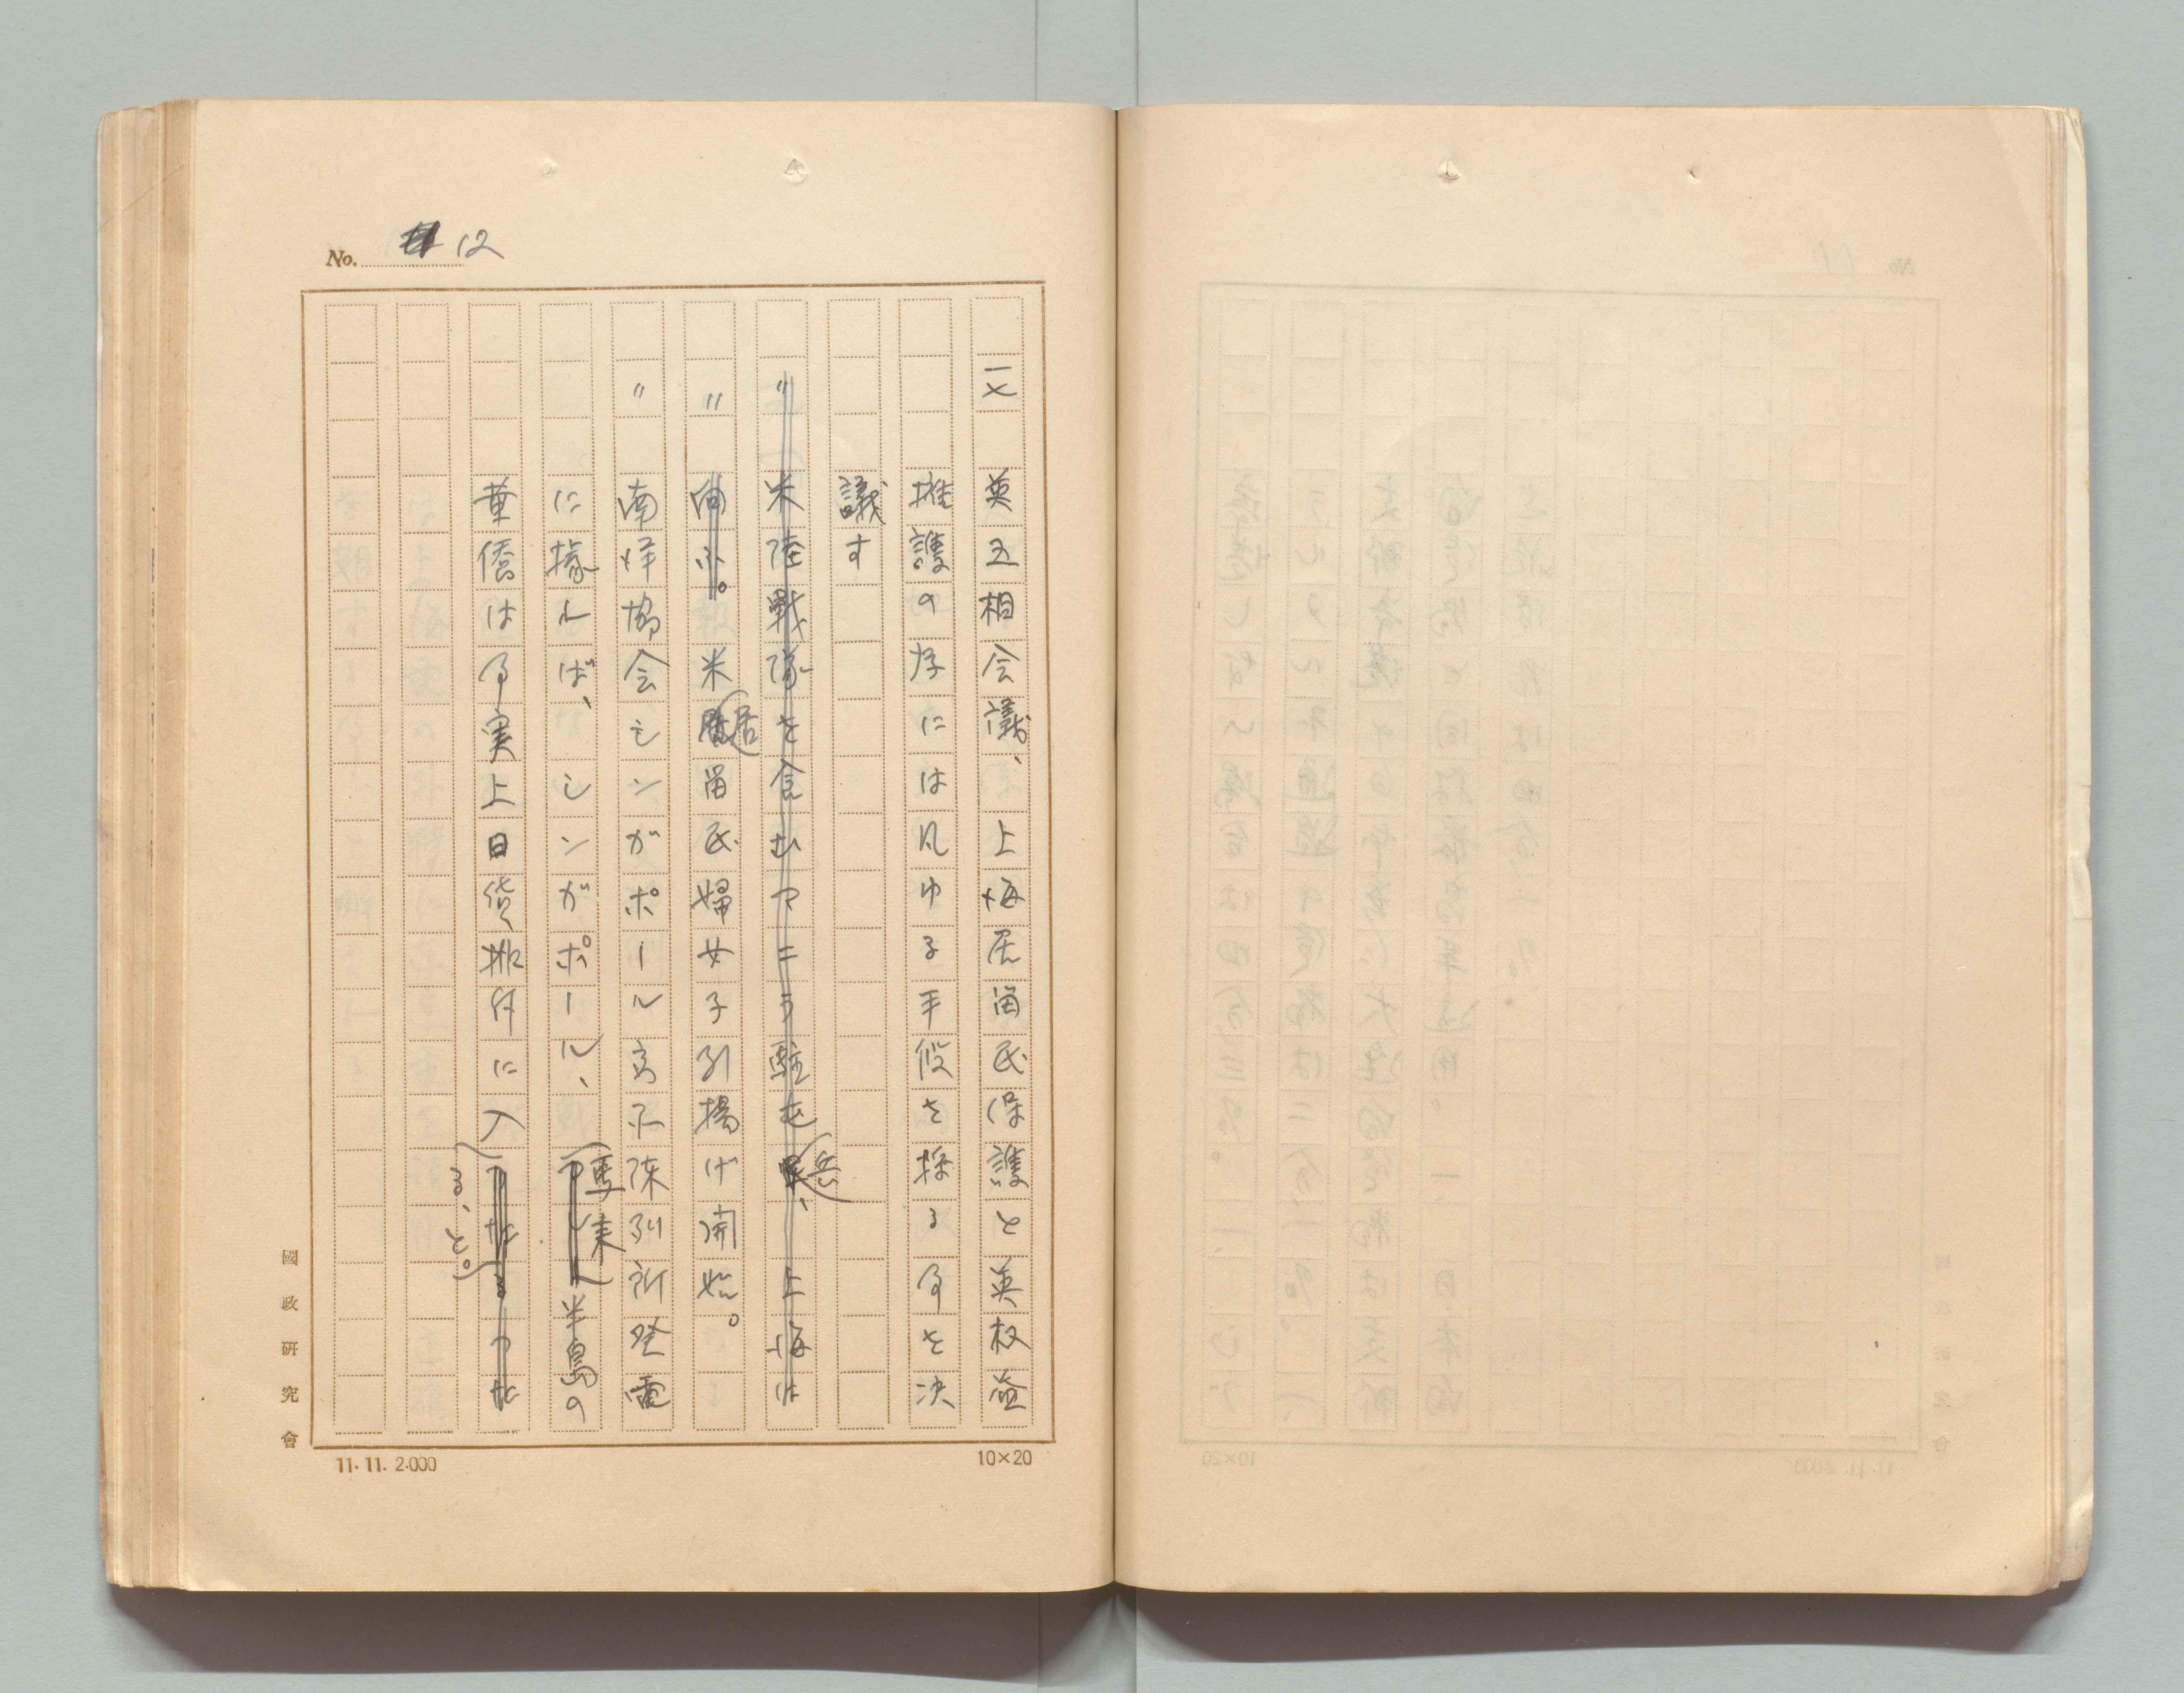 No. 12
一七 英五相会議、上海居留民保護と英权益
擁護の為には凡ゆる手段を採る事を決
議す
〃 米陸戦隊を含むマニラ駐屯兵、上海は
向ふ。
〃 米居留民婦女子引揚げ開始。
〃 南洋協会シンガポール商品陳列所発電
に據れば、シンガポール、馬来半島の
華僑は事実上日貨排斥に入る、と。
國政研究會
11.11.2.000
10×20